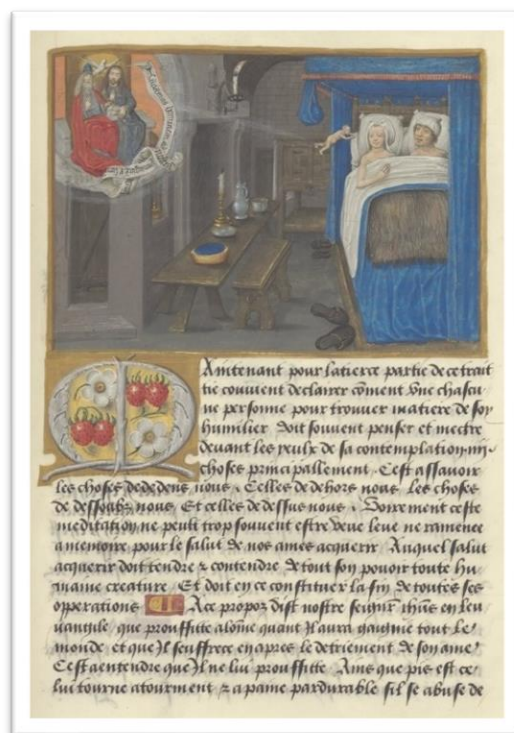 Faciamus hominem ad
Maintenant pour la tierce partie de ce trait
tie couuient declairer coment Une chascu
ne personne pour trouuer matiere de soy
humilier doit souuent penser et mectre
deuant les yeulx de sa contemplation iiij
choses principallement. C'est assauoir
les choses dededens nous. Celles dedehors nous Les choses
de dessoubz nous Et celles de dessus nous. Voirement ceste
meditation ne peult trop souuent estre ne ramenee
a memoire pour le salut de nos ames acquerir Auquel salut
acquerir doit tendre z contendre de tout son pouoir toute hu
maine creature Et doit en ce constituer la fin de toutes ses
opperations A ce propoz dist nostre seignr ihus en leu
uangile que prouffitte a lome quant Il aura gaignie tout Le
monde et que Il seuffrece en apres le detriement de son ame
C'est a entendre que Il ne lui prouffitte Ains que pis est ce
lui tourne a tourment z a paine pardurable sil se abuse de